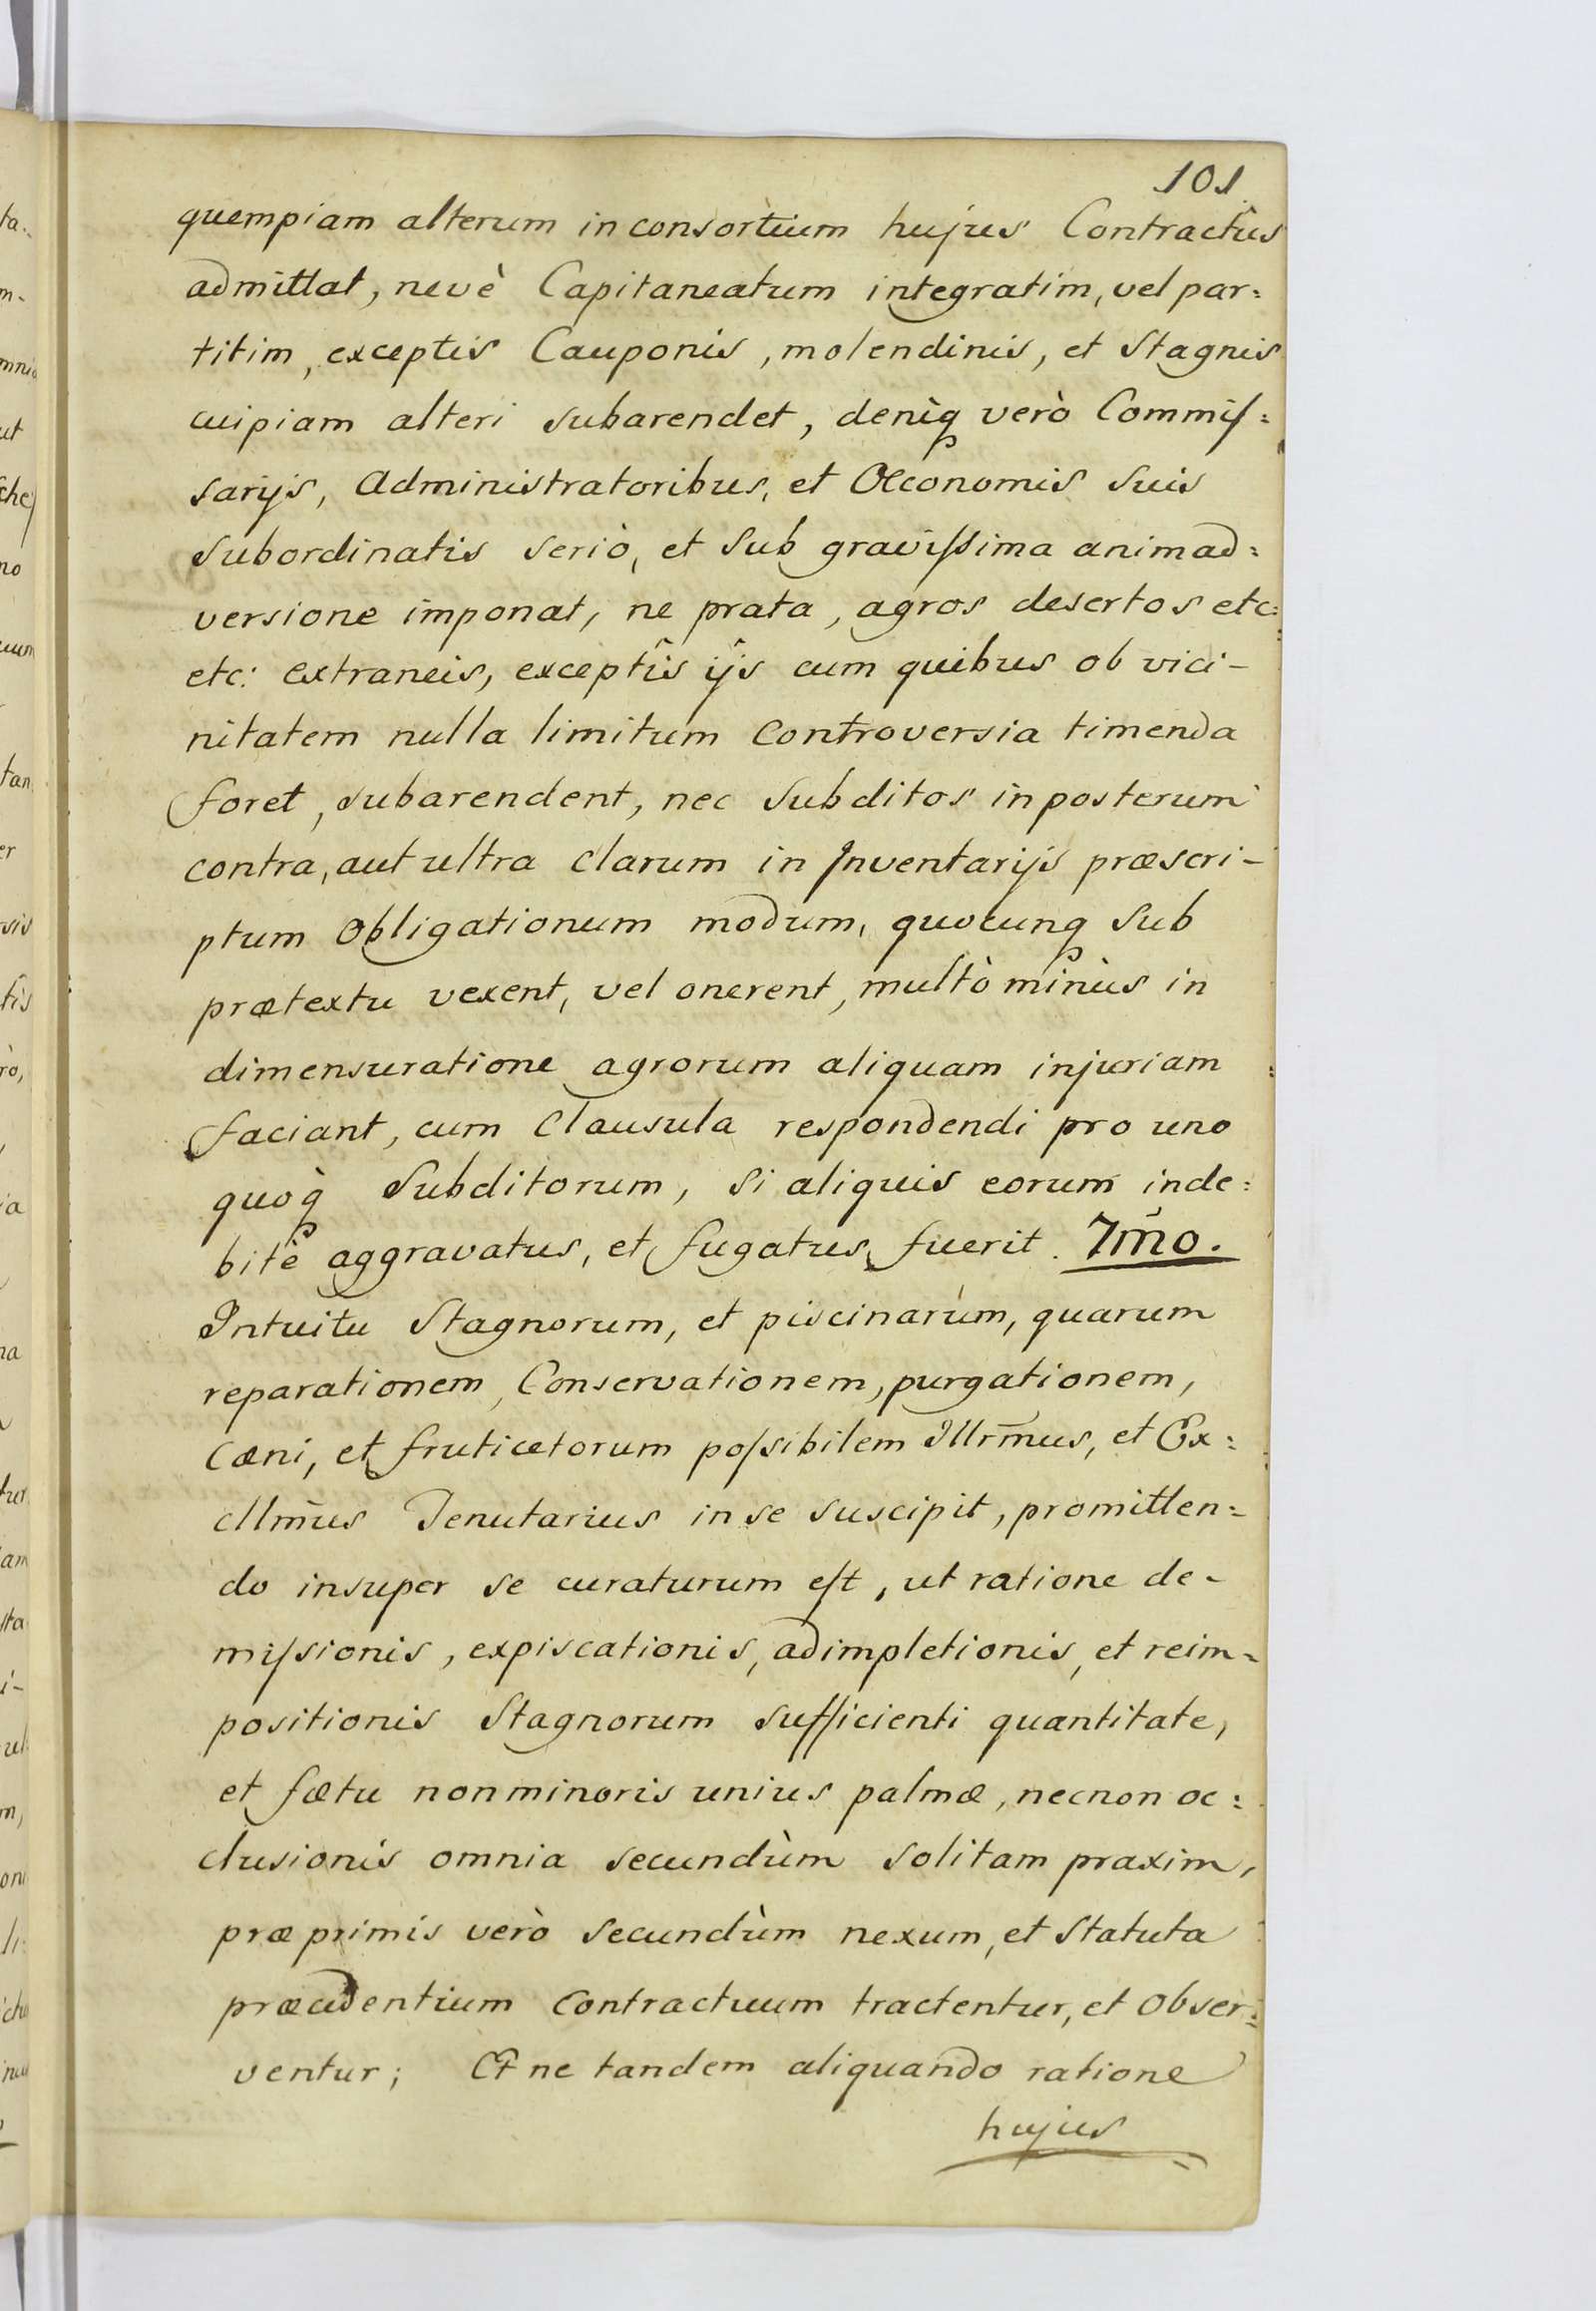 101
quempiam alterum in consortium hujus Contractûs
admittat, nevè Capitaneatum integratim, vel par:
titim, exceptis Cauponis, molendinis, et Stagnis
cuipiam alteri subarendet, deniq verò Commiſ:
sarijs, Administratoribus, et Œconomis suis
subordinatis seriò, et sub graviſsima animad:
versione imponat, ne prata, agros desertos etc:
etc: extraneis, exceptîs ijs cum quibus ob vici-
nitatem nulla limitum Controversia timenda
foret, subarendent, nec subditos in posterum
contra, aut ultra clarum in Inventarijs præscri-
ptum obligationum modum, quocunq sub
prætextu vexent, vel onerent, multò minùs in
dimensuratione agrorum aliquam injuriam
faciant, cum Clausula respondendi pro uno
quoq Subditorum, si aliquis eorum inde:
bitè aggravatus, et fugatus fuerit. 7m̄o.
Intuitu Stagnorum, et piscinarùm, quarum
reparationem, Conservationem, purgationem,
Cæni, et fruticetorum poſsibilem Illrm̄us, et Ex:
cllm̄us Tenutarius in se suscipit, promitten=
do insuper se curaturum eſt, ut ratione de-
miſsionis, expiscationis, adimpletionis, et reim=
positionis Stagnorum sufficienti quantitate,
et fætu non minoris unius palmæ, necnon oc:
clusionis omnia secundùm solitam praxim,
præprimis verò secundùm nexum, et Statuta
præcedentium Contractuum tractentur, et obser:
ventur; Et ne tandem aliquando ratione
hujus